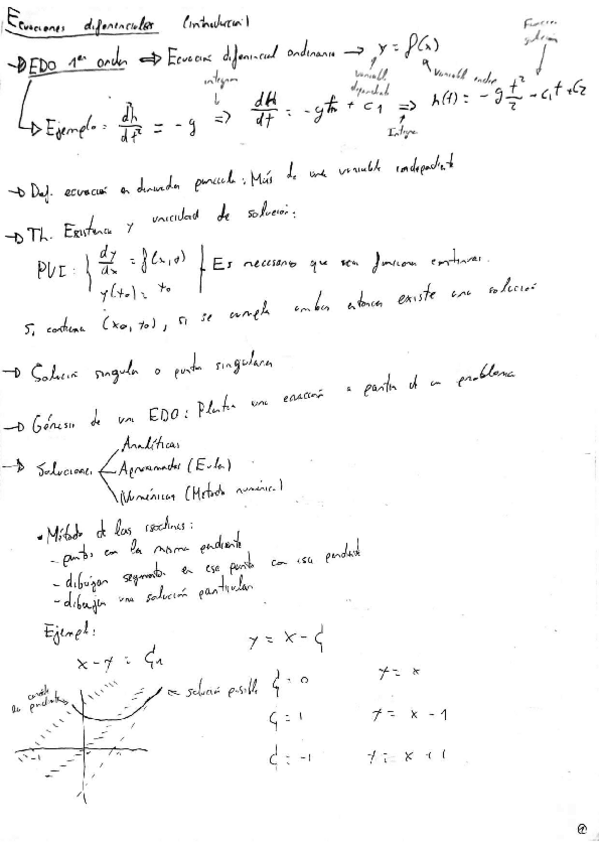 Ecuaciones diferenciales (introducción)
→ EDO 1er orden ⇒ Ecuación diferencial ordinaria → y = f(x)
Función solución
Variable dependiente
Variable
integramos
→ Ejemplo: d²h/dt² = -g ⇒ dh/dt = -gt + C1 ⇒ h(t) = -g t²/2 + C1t + C2
Integra
→ Def. ecuación en derivadas parciales: Más de una variable independiente
→ Th. Existencia y unicidad de solución:
PVI: { dy/dx = f(x,y) } Es necesario que sean funciones continuas.
y(x0) = y0
Si contiene (x0, y0), si se cumple ambas entonces existe una solución
→ Solución singular o puntos singulares
→ Génesis de una EDO: Plantear una ecuación a partir de un problema
→ Soluciones
Analíticas
Aproximadas (Euler)
Numéricas (Método numérico)
• Método de las isoclinas:
- puntos con la misma pendiente
- dibujan segmentos en ese punto con esa pendiente
- dibujan una solución particular
Ejemplo:
x - y = C1
y = x - C
← solución posible
C = 0 y = x
C = 1 y = x - 1
C = -1 y = x + 1
-1
1